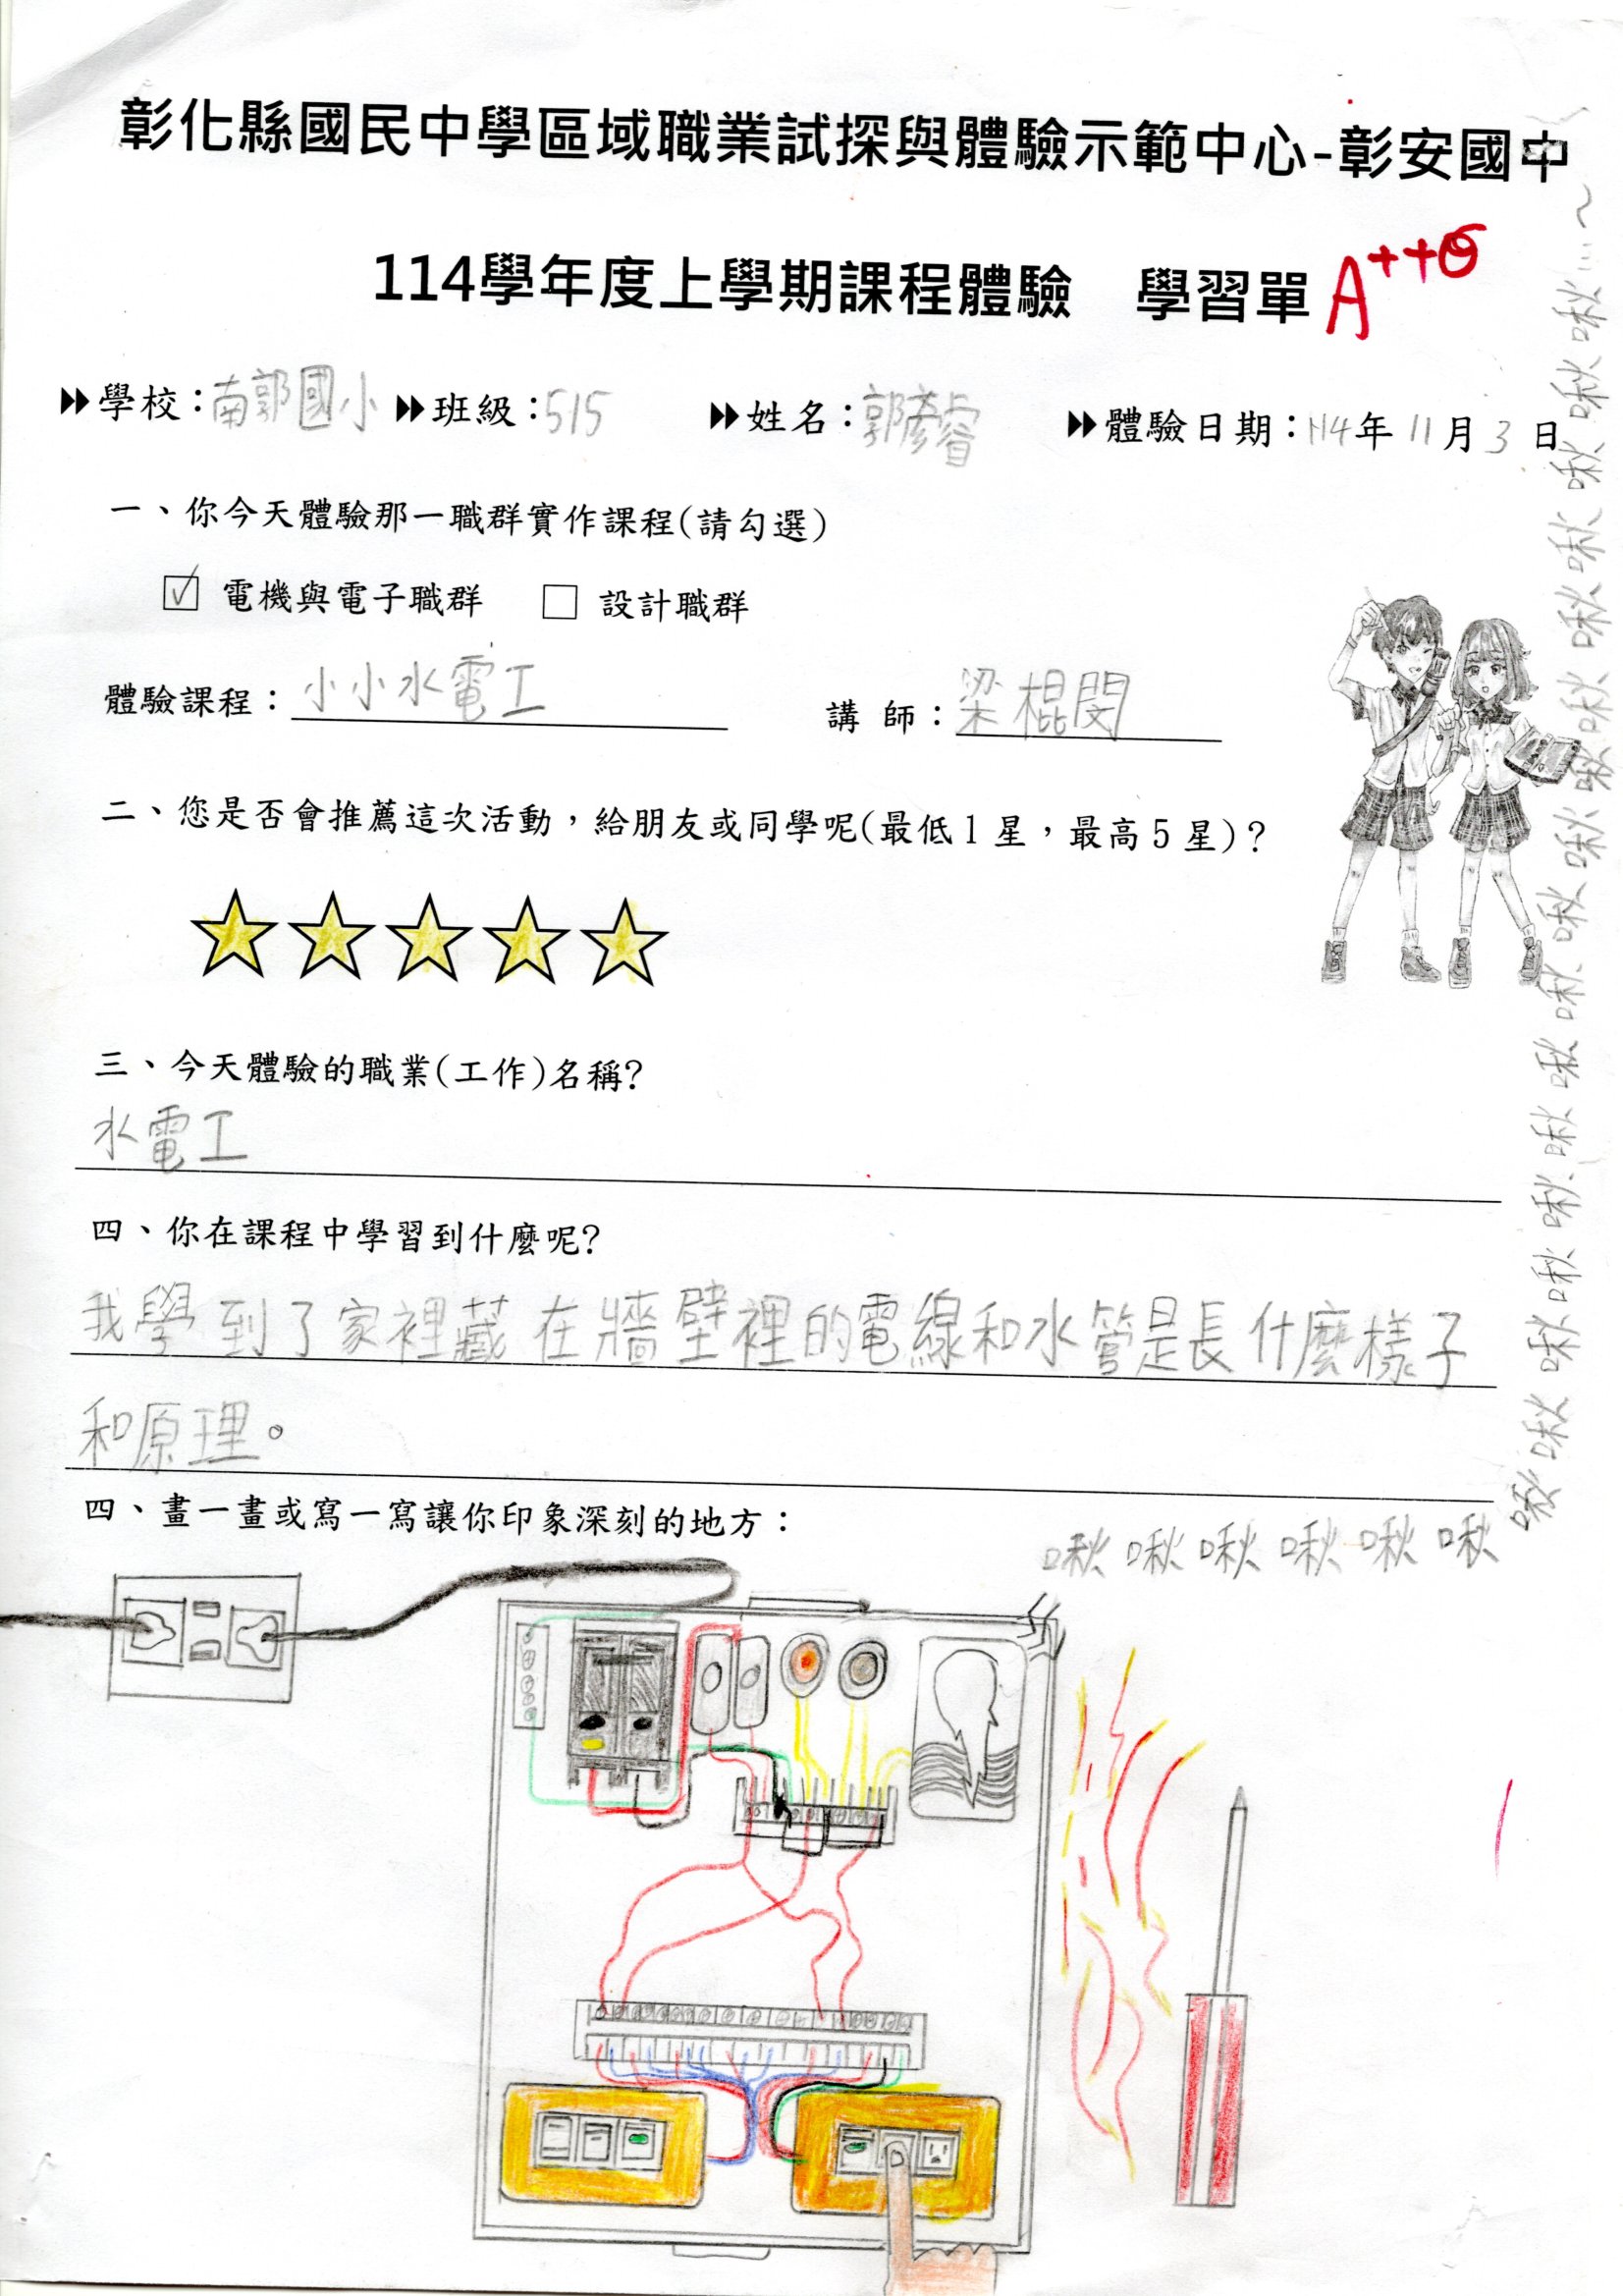 彰化縣國民中學區域職業試探與體驗示範中心-彰安國中
114學年度上學期課程體驗 學習單 A++
學校:南郭國小 班級:515 姓名:郭彥睿 體驗日期:114年11月3日
一、你今天體驗那一職群實作課程(請勾選)
☑ 電機與電子職群 □ 設計職群
體驗課程:小小水電工 講 師:梁棍閔
二、您是否會推薦這次活動,給朋友或同學呢(最低1星,最高5星)?
三、今天體驗的職業(工作)名稱?
水電工
四、你在課程中學習到什麼呢?
我學到了家裡藏在牆壁裡的電線和水管是長什麼樣子
和原理。
四、畫一畫或寫一寫讓你印象深刻的地方:
啾啾啾啾啾啾
啾啾啾啾啾啾啾啾啾啾啾啾啾啾啾啾啾啾啾啾…~